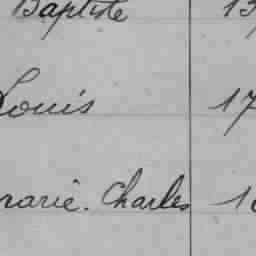 Baptiste 13
Louis 17
marie. Charles 1